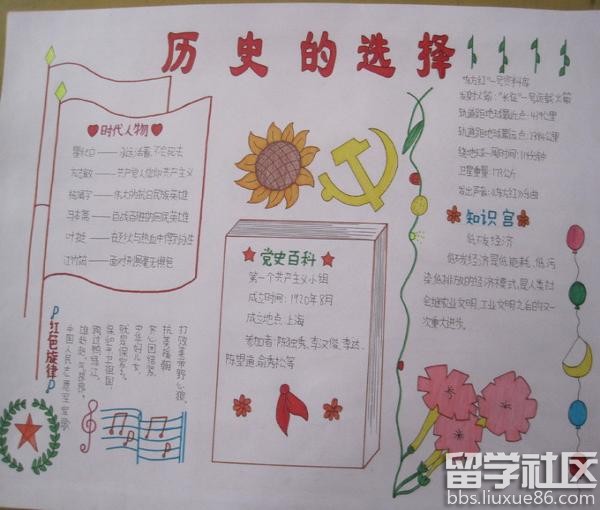 历史的选择
时代人物
瞿秋白——永远活着,不会死去
方志敏——共产党人信仰共产主义
杨靖宇——伟大的抗日民族英雄
马本斋——百战百胜的回民英雄
叶挺——在烈火与热血中得到永生
江竹筠——面对酷刑毫无惧色
党史百科
第一个共产主义小组
成立时间:1920年8月
成立地点:上海
参加者:陈独秀、李汉俊、李达、
陈望道、俞秀松等
"东方红"一号资料库
发射火箭:"长征"一号运载火箭
轨道距地球最近点:439公里
轨道距地球最远点:2384公里
绕地球一周时间:114分钟
卫星重量:173公斤
发出声音:《东方红》乐曲
知识宫
低碳经济
低碳经济是低能耗、低污
染、低排放的经济模式,是人类社
会继农业文明、工业文明之后的又一
次重大进步。
红色旋律
中国人民志愿军军歌
雄赳赳,气昂昂,
跨过鸭绿江,
保和平,卫祖国,
就是保家乡。
中华好儿女,
齐心团结紧,
抗美援朝,
打败美帝野心狼。
留学社区
bbs.liuxue86.com